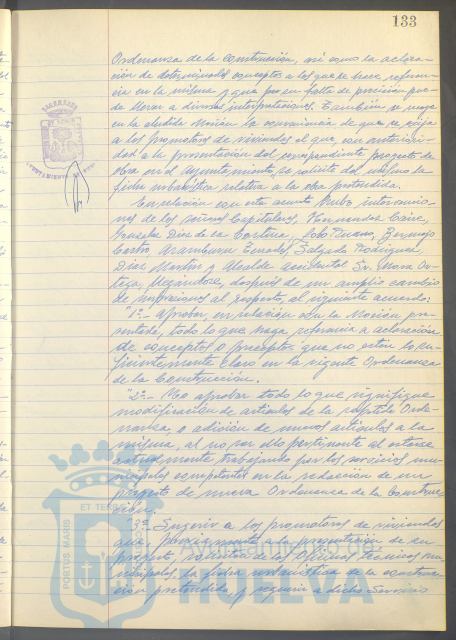 133
Ordenanza de la Construcción, así como la aclara-
ción de determinados conceptos a los que se hace referen-
cia en la misma y que por su falta de precisión pue-
de llevar a diversas interpretaciones. También se recoge
en la aludida Moción la conveniencia de que se exija
a los promotores de viviendas el que, con anteriori-
dad a la presentación del correspondiente proyecto de
obra en el Ayuntamiento, se solicite del mismo la
ficha urbanística relativa a la obra pretendida.
En relación con este asunto hubo intervencio-
nes de los señores Capitulares, Hernández Caire,
González Díaz de la Cortina, Lobo Ruano, Bermejo
Castro, Aramburu Tenado, Salgado Rodríguez
Díaz Martín y Alcalde accidental Sr. Mora Or-
tega, llegándose, después de un amplio cambio
de impresiones al respecto, al siguiente acuerdo:
"1º.- Aprobar, en relación con la Moción pre-
sentada, todo lo que haga referencia a aclaración
de conceptos o preceptos que no estén lo su-
ficientemente claro en la vigente Ordenanza
de la Construcción.
"2º.- No aprobar todo lo que signifique
modificación de artículos de la repetida Orde-
nanza, o adición de nuevos artículos a la
misma, al no ser ello pertinente al estarse
actualmente trabajando por los servicios mu-
nicipales competentes en la redacción de un
proyecto de nueva Ordenanza de la Construc-
ción.
"3º Sugerir a los promotores de viviendas
que, previamente a la presentación de su
proyecto, soliciten de las Oficinas técnicas mu-
nicipales, la ficha urbanística de la construc-
ción pretendida, y requerir a dicho Servicio
PORTUS MARIS ET TERRAE
Ayuntamiento de
HUELVA